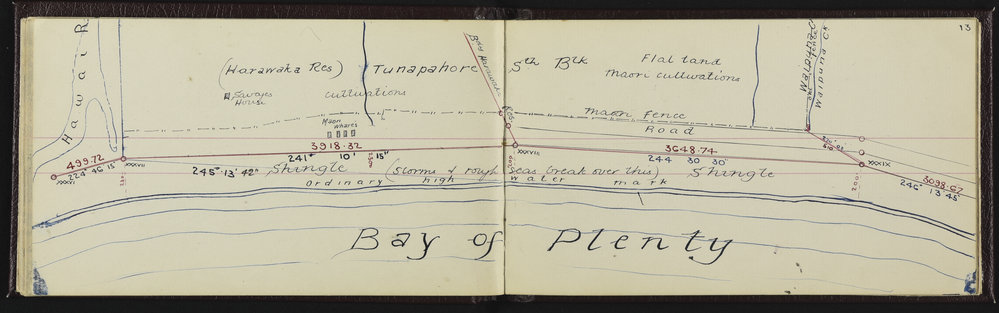 13
Hawai R.
(Harawaka Res) Tunapahore Sth Blk
Flat land
Maori cultivations
Savages
House
cultivations
Maori
whares
Maori fence
Road
fence
499.72
224° 46' 15"
XXXVI
XXXVII
3918.32
241° 10' 15"
245° 13' 42"
XXXVIII
3648.74
244 30 30'
XXXIX
3098.67
246° 13' 45"
Shingle (Storms & rough Seas break over this) Shingle
Ordinary high water mark
Bay of Plenty